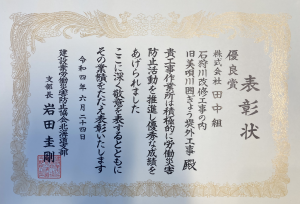 表彰状
優良賞
株式会社 田中組
石狩川改修工事の内
旧美唄川囲ぎょう堤外工事 殿
貴工事作業所は積極的に労働災害
防止活動を推進し優秀な成績を
あげられました
ここに深く敬意を表するとともに
その業績をたたえ表彰いたします
令和四年六月二十四日
建設業労働災害防止協会北海道支部
支部長 岩田圭剛